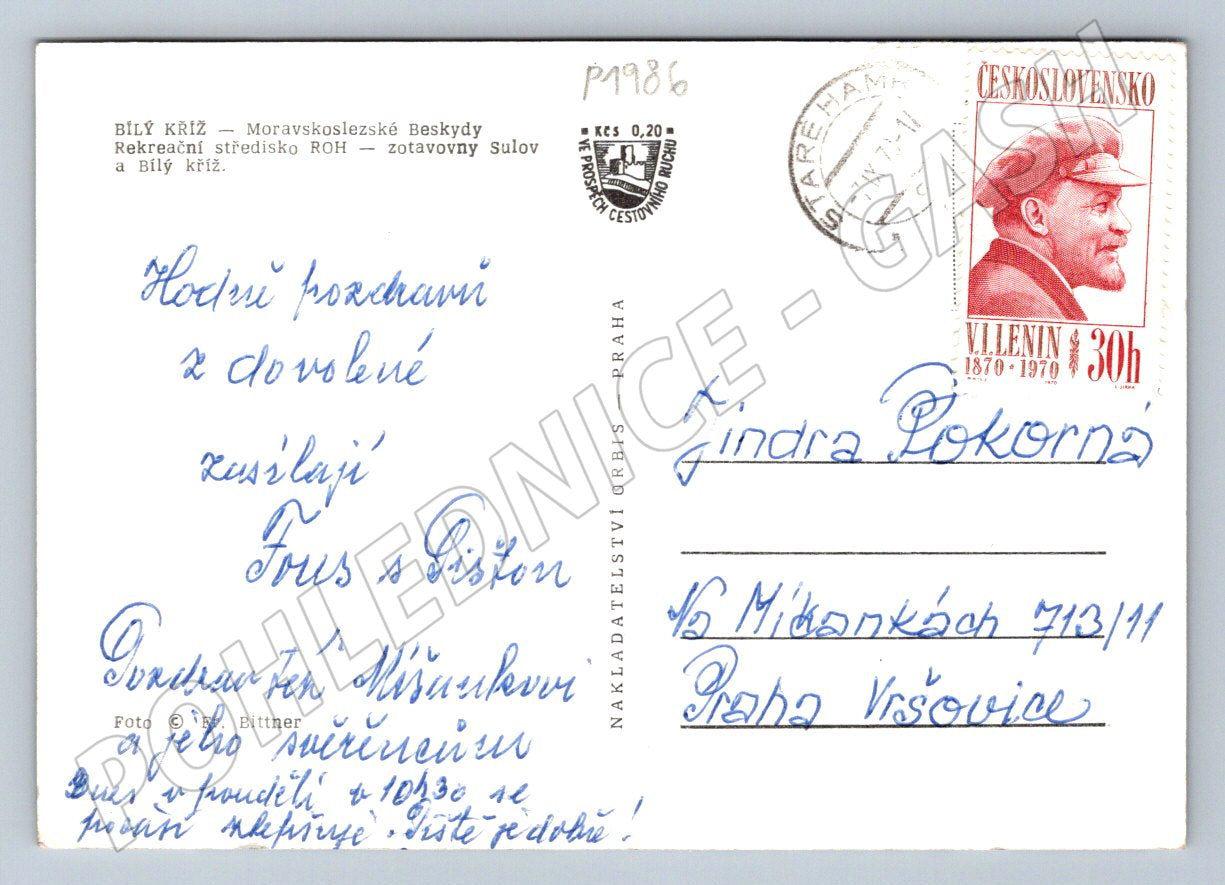 P1986
BÍLÝ KŘÍŽ — Moravskoslezské Beskydy
Rekreační středisko ROH — zotavovny Sulov
a Bílý kříž.
Kčs 0,20
VE PROSPĚCH CESTOVNÍHO RUCHU
STARÉ HAMR
ČESKOSLOVENSKO
V.I.LENIN
1870 • 1970
30h
Hodně pozdravů
z dovolené
zasílají
Fous s
Pozdrav též
a jeho svěřencům
Dnes v pondělí v 10h30 se
počasí zlepšuje.
Foto © Fr. Bittner
NAKLADATELSTVÍ ORBIS — PRAHA
Jindra Pokorná
Na Míčánkách 713/11
Praha Vršovice
POHLEDNICE - GASH